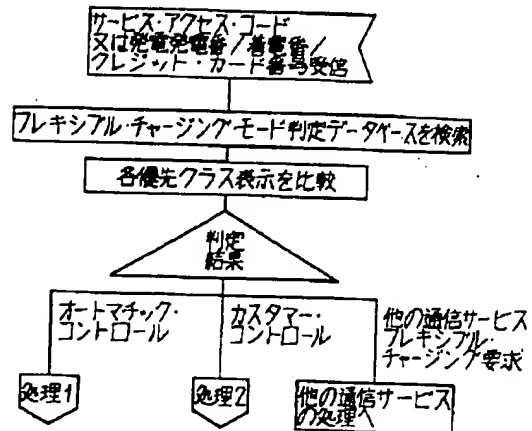 サービス・アクセス・コード
又は発電発電番/着電番/
クレジット・カード番号受信
フレキシブル・チャージング・モード判定データベースを検索
各優先クラス表示を比較
判定
結果
オートマチック・
コントロール
カスタマー・
コントロール
他の通信サービス
フレキシブル・
チャージング要求
処理1
処理2
他の通信サービス
の処理へ